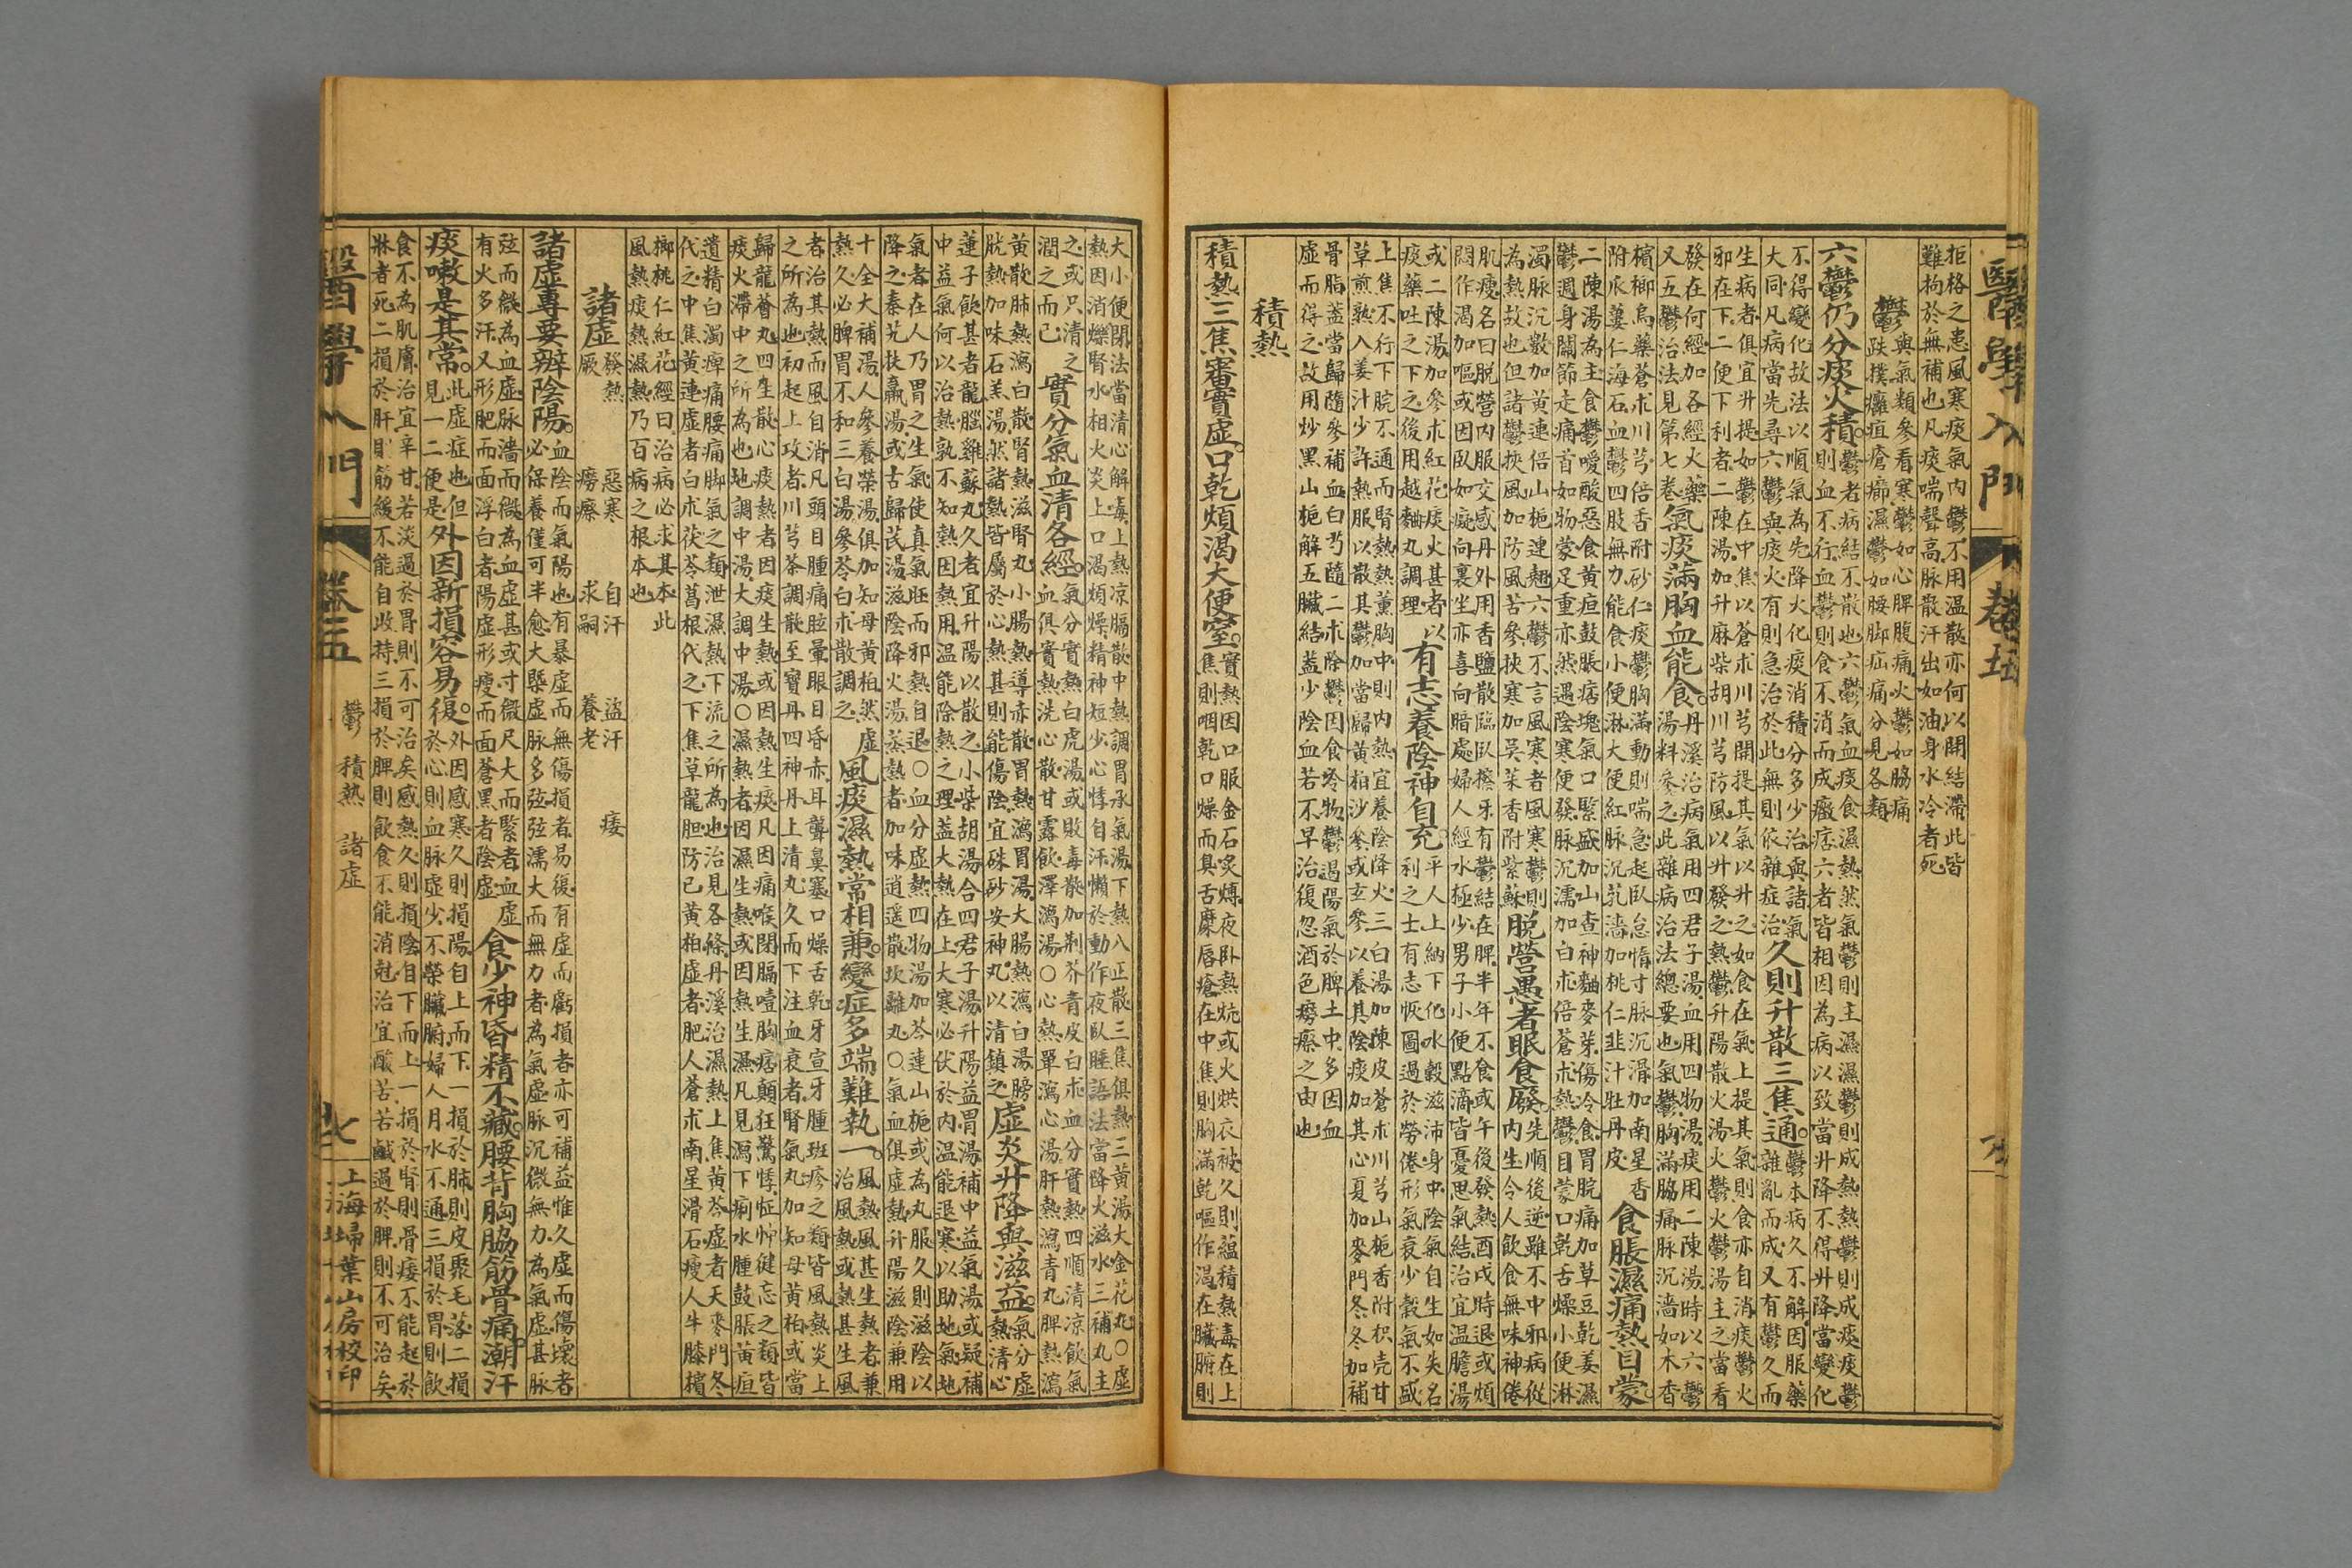 醫學入門
卷五
拒格之患風寒痰氣內鬱不用溫散亦何以開結滯此皆
難拘於無補也凡痰喘聲高脈散汗出如油身水冷者死
鬱與氣類參看寒鬱如心脾腹痛火鬱如脇痛
跌撲癰疽瘡癤濕鬱如腰脚疝痛分見各類
六鬱仍分痰火積鬱者病結不散也六鬱氣血痰食濕熱然氣鬱則主濕濕鬱則成熱熱鬱則成痰痰鬱
則血不行血鬱則食不消而成癥痞六者皆相因為病以致當升降不得升降當變化
不得變化故法以順氣為先降火化痰消積分多少治與諸氣
大同凡病當先尋六鬱與痰火有則急治於此無則依雜症治久則升散三焦通鬱本病久不解因服藥
雜亂而成又有鬱久而
生病者俱宜升提如鬱在中焦以蒼朮川芎開提其氣以升之如食在氣上提其氣則食亦自消痰鬱火
邪在下二便下利者二陳湯加升麻柴胡川芎防風以升發之熱鬱升陽散火湯火鬱火鬱湯主之當看
發在何經加各經火藥
又五鬱治法見第七卷氣痰滿胸血能食丹溪治病氣用四君子湯血用四物湯痰用二陳湯時以六鬱
湯料參之此雜病治法總要也氣鬱胸滿脇痛脈沉濇如木香
檳榔烏藥蒼朮川芎倍香附砂仁痰鬱胸滿動則喘急起臥怠惰寸脈沉滑加南星香
附瓜蔞仁海石血鬱四肢無力能食小便淋大便紅脈沉芤濇加桃仁韭汁牡丹皮食脹濕痛熱目蒙
二陳湯為主食鬱噯酸惡食黃疸鼓脹痞塊氣口緊盛加山查神麯麥芽傷冷食胃脘痛加草豆乾姜濕
鬱週身關節走痛首如物蒙足重亦然遇陰寒便發脈沉濡加白朮倍蒼朮熱鬱目蒙口乾舌燥小便淋
濁脈沉數加黃連倍山梔連翹六鬱不言風寒者風寒鬱則
為熱故也但諸鬱挾風加防風苦參挾寒加吳茱香附紫蘇脫營愚者眠食廢內生先順後逆雖不中邪病從
令人飲食無味神倦
肌瘦名曰脫營內服交感丹外用香鹽散臨臥擦牙有鬱結在脾半年不食或午後發熱酉戌時退或煩
悶作渴加嘔或因臥如癡向裏坐亦喜向暗處婦人經水極少男子小便點滴皆憂思氣結治宜溫膽湯
或二陳湯加參朮紅花痰火甚者以
痰藥吐之下之後用越麯丸調理有志養陰神自充平人上納下化水穀滋沛身中陰氣自生如失名
利之士有志恢圖過於勞倦形氣衰少穀氣不盛
上焦不行下脘不通而腎熱熱薰胸中則內熱宜養陰降火三白湯加陳皮蒼朮川芎山梔香附枳壳甘
草煎熟入姜汁少許熱服以散其鬱加當歸黃柏沙參或玄參以養其陰痰加其心夏加麥門冬冬加補
骨脂蓋當歸隨參補血白芍隨二朮除鬱因食冷物鬱遏陽氣於脾土中多因血
虛而得之故用炒黑山梔解五臟結蓋少陰血若不早治復忽酒色癆瘵之由也
積熱
積熱三焦審實虛口乾煩渴大便窒實熱因口服金石炙煿夜卧熱炕或火烘衣被久則蘊積熱毒在上
焦則咽乾口燥而臭舌糜唇瘡在中焦則胸滿乾嘔作渴在臟腑則
大小便閉法當清心解毒上熱凉膈散中熱調胃承氣湯下熱八正散三焦俱熱三黃湯大金花丸○虛
熱因消爍腎水相火炎上口渴煩燥精神短少心悸自汗懶於動作夜臥睡語法當降火滋水三補丸主
之或只清之
潤之而已實分氣血清各經氣分實熱白虎湯或敗毒散加荊芥青皮白朮血分實熱四順清凉飲氣
血俱實熱洗心散甘露飲澤瀉湯○心熱單瀉心湯肝熱瀉青丸脾熱瀉
黃散肺熱瀉白散腎熱滋腎丸小腸熱導赤散胃熱瀉胃湯大腸熱瀉白湯膀
胱熱加味石羔湯然諸熱皆屬於心熱熱甚則能傷陰宜硃砂安神丸以清鎮之虛炎升降與滋益氣分虛
熱清心
蓮子飲甚者龍腦雞蘇丸久者宜升陽以散之小柴胡湯合四君子湯升陽益胃湯補中益氣湯或疑補
中益氣何以治熱孰不知熱因熱用溫能除熱之理蓋大熱在上大寒必伏於內溫能退寒以助地氣地
氣者在人乃胃之生氣使真氣旺而邪熱自退○血分虛熱四物湯加芩連山梔或為丸服久則滋陰以
降之秦艽扶羸湯或古歸芪湯滋陰降火湯蒸熱者加味逍遥散坎離丸○氣血俱虛熱升陽滋陰兼用
十全大補湯人參養榮湯俱加知母黃柏然虛
熱久必脾胃不和三白湯參苓白朮散調之風痰濕熱常相兼變症多端難執一風熱風甚生熱者兼
治風熱或熱甚生風
者治其熱而風自消凡頭目腫痛眩暈眼目昏赤耳聾鼻塞口燥舌乾牙宣牙腫班疹之類皆風熱炎上
之所為也初起上攻者川芎茶調散至寶丹四神丹上清丸久而下注血衰者腎氣丸加知母黃柏或當
歸龍薈丸四生散心痰熱者因痰生熱或因熱生痰凡因痛喉閉膈噎胸痞顛狂驚悸怔忡健忘之類皆
痰火滯中之所為也地調中湯大調中湯○濕熱者因濕生熱或因熱生濕凡見瀉下痢水腫鼓脹黃疸
遺精白濁痺痛腰痛脚氣之類泄濕熱下流之所為也治見各條丹溪治濕熱上焦黃芩虛者天麥門冬
代之中焦黃連虛者白朮茯苓葛根代之下焦草龍胆防己黃柏虛者肥人蒼朮南星滑石瘦人牛膝檳
榔桃仁紅花經曰治病必求其本此
風熱痰熱濕熱乃百病之根本也
諸虛 發熱 惡寒 自汗 盜汗 痿
厥 癆瘵 求嗣 養老
諸虛專要辨陰陽血陰而氣陽也有暴虛而無傷損者易復有虛而虧損者亦可補益惟久虛而傷壞者
必保養僅可半愈大槩虛脈多弦弦濡大而無力者為氣虛脈沉微無力為氣虛甚脈
弦而微為血虛脈濇而微為血虛甚或寸微尺大而緊者血虛
有火多汗又形肥而面浮白者陽虛形瘦而面蒼黑者陰虛食少神昏精不藏腰背胸脇筋骨痛潮汗
痰嗽是其常此虛症也但
見一二便是外因新損容易復外因感寒久則損陽自上而下一損於肺則皮聚毛落二損
於心則血脈虛少不榮臟腑婦人月水不通三損於胃則飲
食不為肌膚治宜辛甘若淡過於胃則不可治矣感熱久則損陰自下而上一損於腎則骨痿不能起於
牀者死二損於肝則筋緩不能自收持三損於脾則飲食不能消尅治宜酸苦苦鹹過於脾則不可治矣
醫學入門
卷五
鬱 積熱 諸虛
七
上海埽葉山房校印